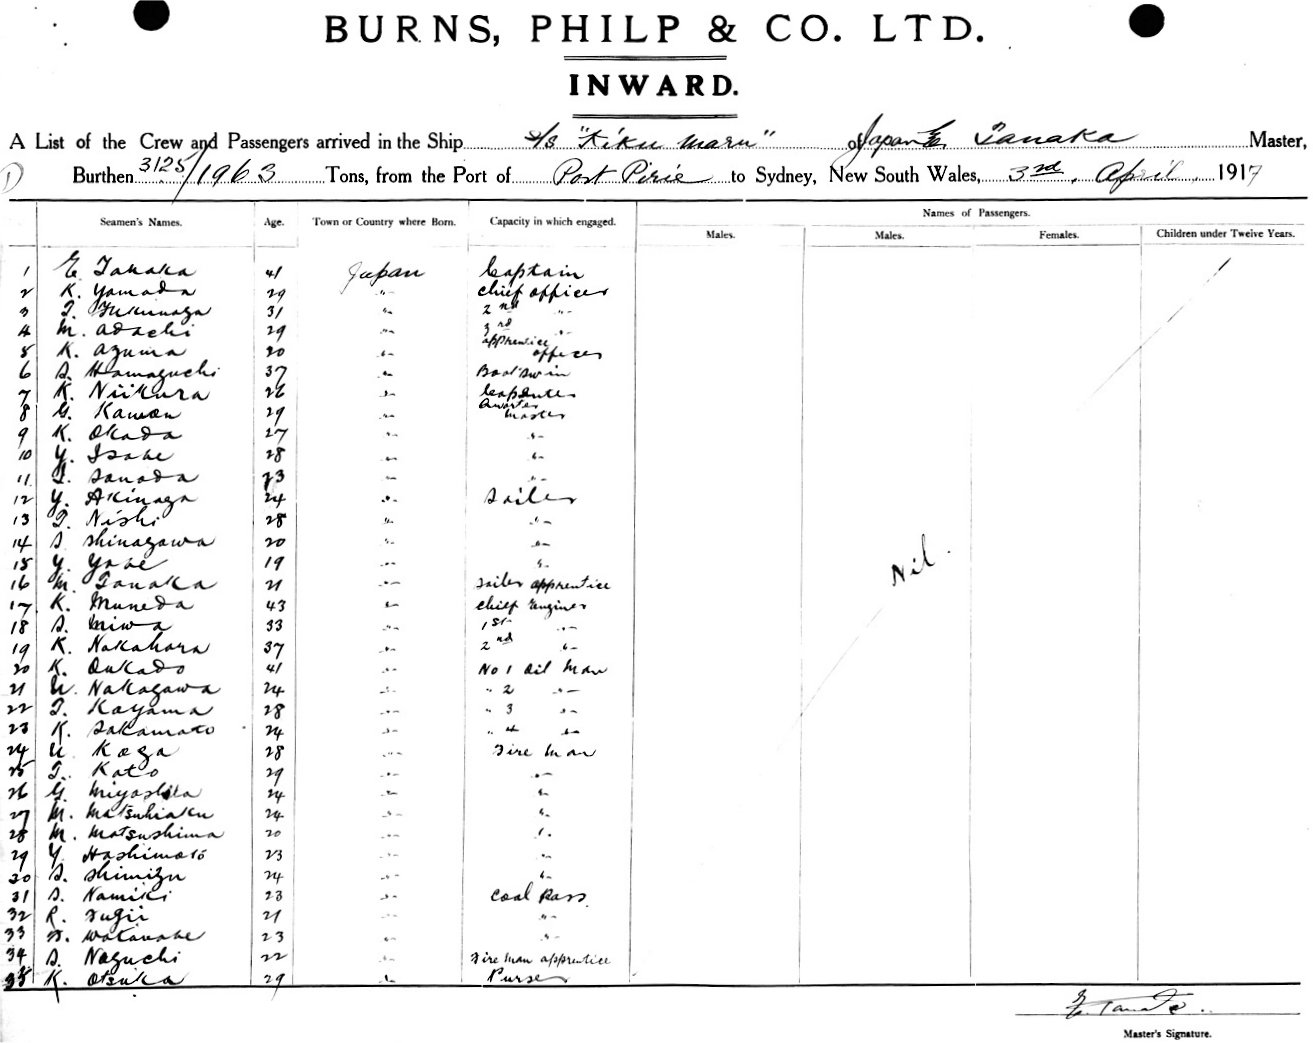 BURNS, PHILP & CO. LTD.
INWARD.
A List of the Crew and Passengers arrived in the Ship s/s "Kiku Maru" of Japan E. Tanaka Master,
Burthen 3125/1963 Tons, from the Port of Port Pirie to Sydney, New South Wales, 3rd April 1917
Names of Passengers.
Seamen's Names. Age. Town or Country where Born. Capacity in which engaged. Males. Males. Females. Children under Twelve Years.
1 E. Tanaka 41 Japan Captain
2 K. Yamada 29 " chief officer
3 T. Fukunaga 31 " 2nd "
4 M. Adachi 29 " 3rd "
5 K. Azuma 20 " apprentice officer
6 S. Hamaguchi 37 " Boatswin
7 K. Niikura 26 " Carpenter
8 G. Kamon 29 " Quarter Master
9 K. Okada 27 " "
10 Y. Isobe 28 " "
11 T. Sanada 23 " "
12 Y. Akinaga 24 " Sailer
13 T. Nishi 28 " "
14 S. Shinagawa 20 " "
15 Y. Yabe 19 " "
16 M. Tanaka 21 " Sailer apprentice
17 K. Muneda 43 " chief Enginer
18 S. Miwa 33 " 1st "
19 K. Nakahara 37 " 2nd "
20 K. Oukado 41 " No 1 Oil Man
21 U. Nakagawa 24 " " 2 "
22 T. Kayama 28 " " 3 "
23 K. Sakamoto 24 " " 4 "
24 U. Koga 28 " Fire Man
25 T. Kato 29 " "
26 G. Miyashita 24 " "
27 M. 24 " "
28 M. Matsushima 20 " "
29 Y. Hashimoto 23 " "
30 S. Shimizu 24 " "
31 S. Namiki 23 " Coal Pass
32 R. Fugii 21 " "
33 Watanabe 23 " "
34 S. Noguchi 22 " Fire Man apprentice
35 K. Otsuka 29 " Purser
Nil.
E. Tanaka
Master's Signature.